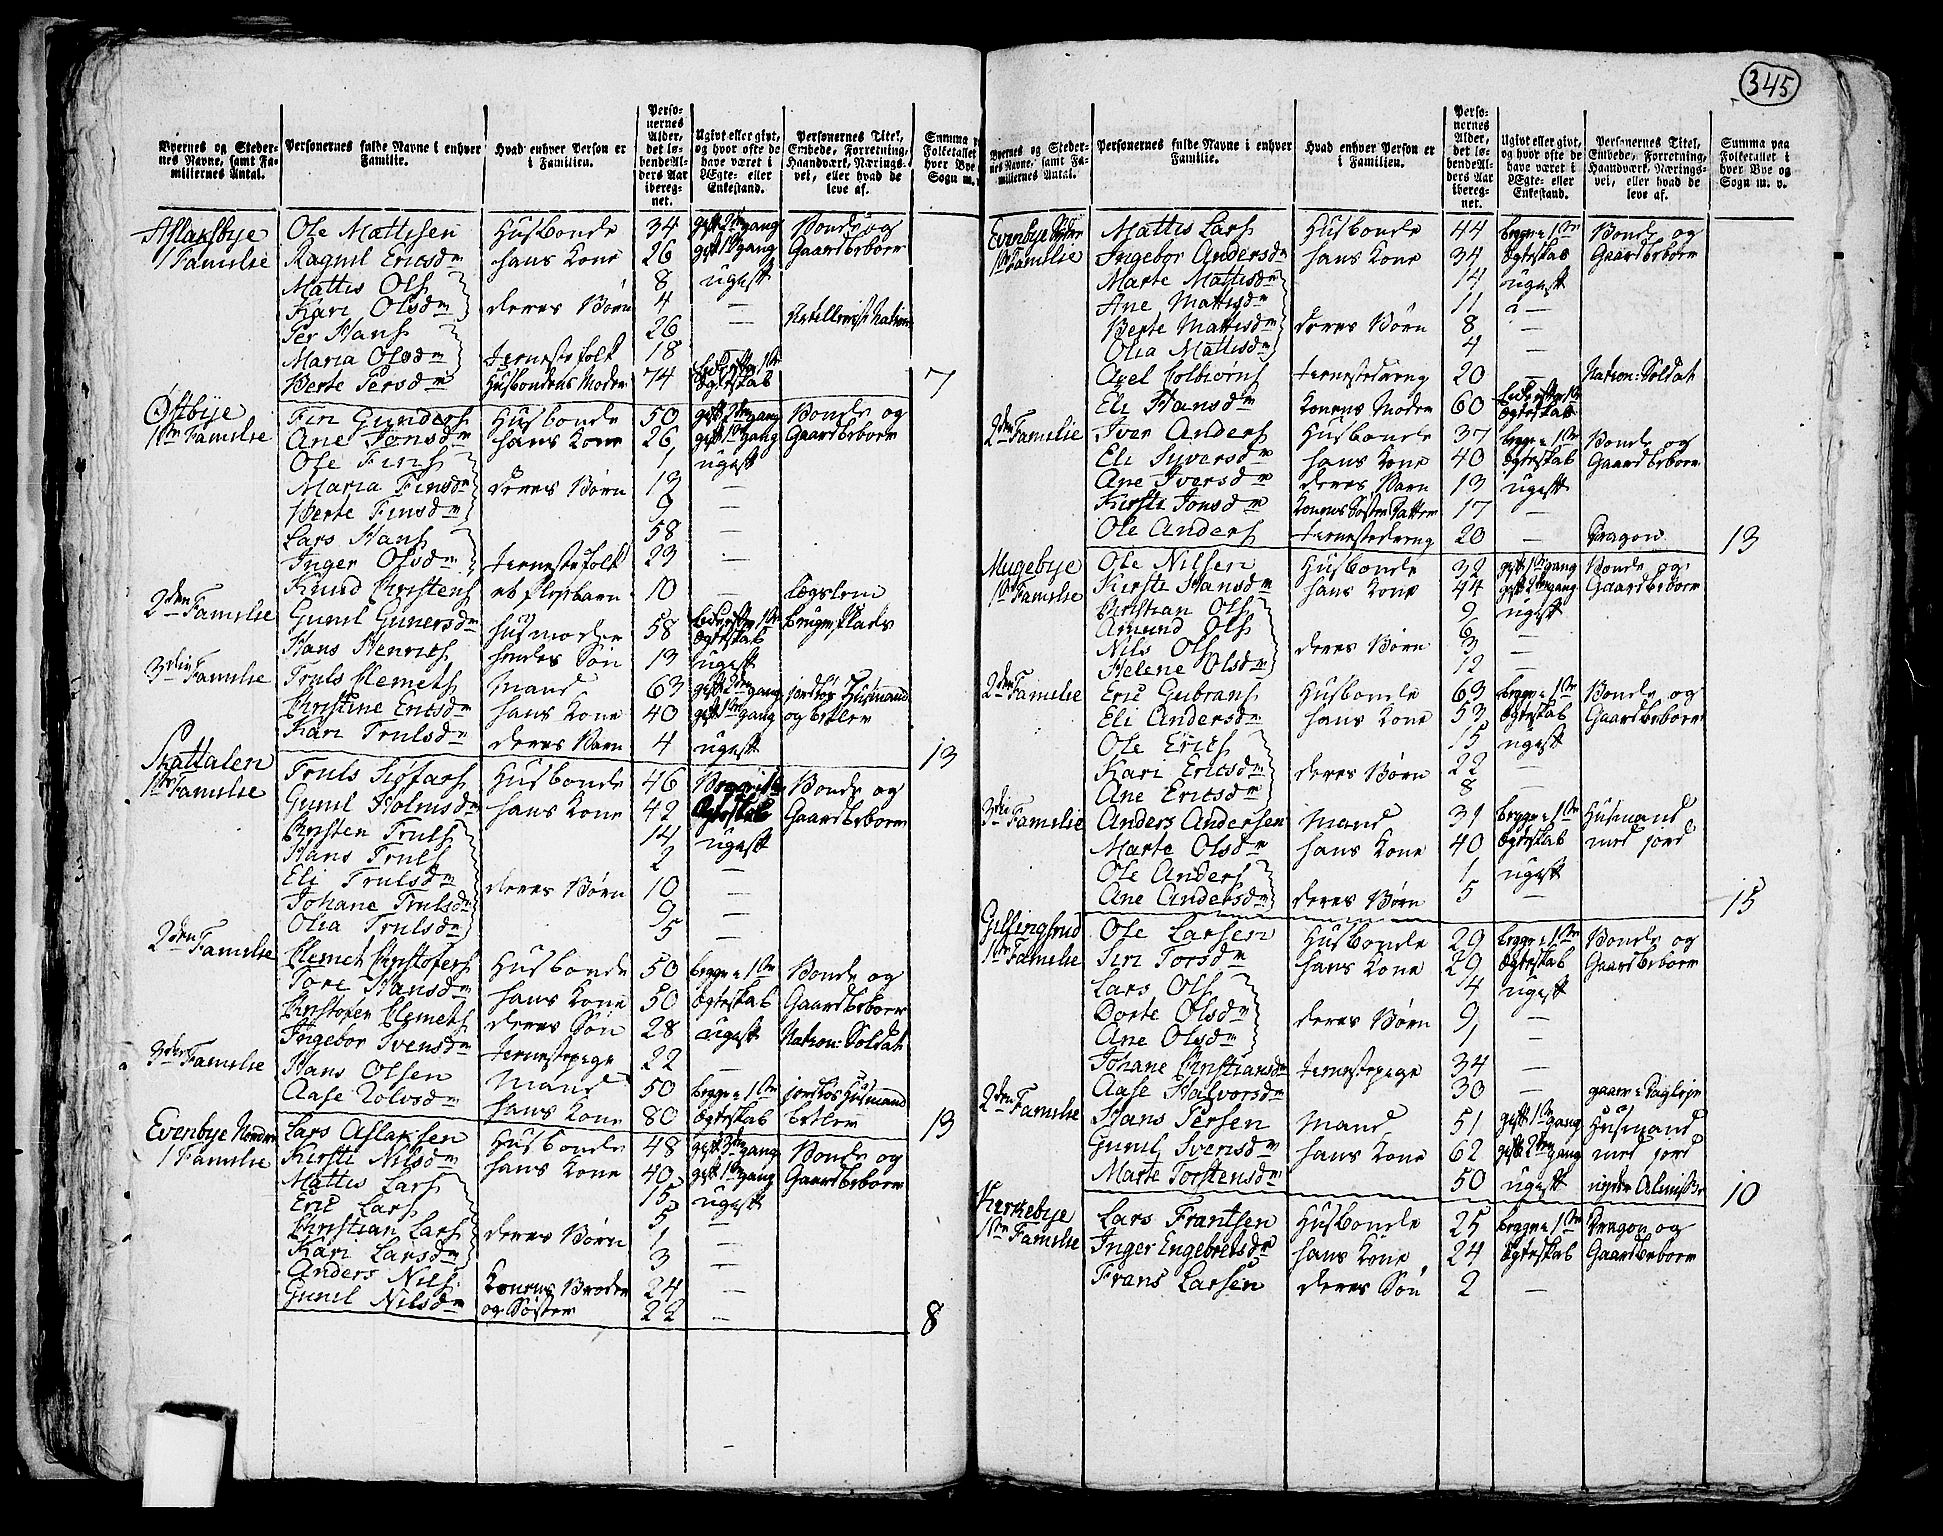 345
Byernes og Stedernes Navne, samt Familiernes Antal. | Personernes fulde Navne i enhver Familie. | Hvad enhver Person er i Familien. | Personernes Alder, det løbende Alders Aar iberegnet. | Ugivt eller givt, og hvor ofte de have været i Ægte- eller Enkestand. | Personernes Titel, Embede, Forretning, Haandværk, Næringsvei, eller hvad de leve af. | Summa paa Folketallet i hver Bye og Sogn m. v.
Aslaksbye 1 Familie | Ole Mattisen | Husbonde | 34 | gift 2den gang | Bonde og
Ragnil Ericsdr | hans Kone | 26 | gift 1ste gang | Gaardbeboer
Mattis Ols | 8 | ugift
Kari Olsdr | deres Børn | 4 | —
Per Hans | 26 | —
Maria Olsdr | tienestefolk | 18 | —
Berte Persdr | Husbondens Moder | 74 | ægteskab | 7
Østbye 1ste Familie | Fin Gunders | Husbonde | 50 | gift 2den gang | Bonde og
Ane Jonsdr | hans Kone | 26 | gift 1ste gang | Gaardbeboer
Ole Fins | 1 | ugift
Maria Finsdr | deres Børn | 13 | —
Berte Finsdr | 9 | —
Lars Hans | 58 | —
Inger Olsdr | tienestefolk | 23 | —
Knud Christens | 10 | — | Lægslem
2den Familie | Gunil Gunersdr | Husmoder | 58 | ægteskab
Hans Henrics | hendes Søn | 13 | ugift
3die Familie | Truls Clemets | Mand | 63 | gift 2den gang | jordløs Husmand
Christine Ericsdr | hans Kone | 40 | gift 1ste gang | og betler
Kari Trulsdr | deres Barn | 4 | ugift | 13
Skattalen 1ste Familie | Truls | Husbonde | 46 | Bonde og
Gunil Holmsdr | hans Kone | 42 | Ægteskab | Gaardbeboer
Christen Truls | 14 | ugift
Hans Truls | 2
Eli Trulsdr | deres Børn | 10 | —
Johane Trulsdr | 9 | —
Olia Trulsdr | 5 | —
2den Familie | Clemet Christofers | Husbonde | 50 | begge i 1ste | Bonde og
Tore Hansdr | hans Kone | 50 | ægteskab | Gaardbeboer
Christofer Clemets | deres Søn | 28 | ugift | Nation: Soldat
Ingebor Svensdr | tienestepige | 22 | —
3die Familie | Hans Olsen | Mand | 50 | begge i 1ste | jordløs Husmand
Aase Rolvsdr | hans Kone | 80 | ægteskab | betler | 13
Evenbye Nordre 1 Familie | Lars Aslaksen | Husbonde | 48 | gift 3den gang | Bonde og
Kirsti Nilsdr | hans Kone | 40 | gift 1ste gang | Gaardbeboer
Mattis Lars | 15 | ugift
Eric Lars | 5 | —
Christian Lars | deres Børn | 1 | —
Kari Larsdr | 3 | —
Anders Nils | Konens Broder | 24 | —
Gunil Nilsdr | og Søster | 22 | — | 8
Byernes og Stedernes Navne, samt Familiernes Antal. | Personernes fulde Navne i enhver Familie. | Hvad enhver Person er i Familien. | Personernes Alder, det løbende Alders Aar iberegnet. | Ugivt eller givt, og hvor ofte de have været i Ægte- eller Enkestand. | Personernes Titel, Embede, Forretning, Haandværk, Næringsvei, eller hvad de leve af. | Summa paa Folketallet i hver Bye og Sogn m. v.
Evenbye 1ste Familie | Mattis Lars | Husbonde | 44 | begge i 1ste | Bonde og
Ingebor Andersdr | hans Kone | 34 | ægteskab | Gaardbeboer
Marte Mattisdr | 14 | ugift
Ane Mattisdr | 11 | —
Berte Mattisdr | deres Børn | 8 | —
Olia Mattisdr | 4 | —
Axel Colbiørns | tienestedreng | 20 | — | Nation: Soldat
Eli Hansdr | Konens Moder | 60 | ægteskab
2den Familie | Iver Anders | Husbonde | 37 | begge i 1ste | Bonde og
Eli Syversdr | hans Kone | 40 | ægteskab | Gaardbeboer
Ane Iversdr | deres Barn | 13 | ugift
Kirsti Jonsdr | Konens Søster Datter | 17 | —
Ole Anders | tienestedreng | 20 | — | Dragon | 13
Mugebye 1ste Familie | Ole Nilsen | Husbonde | 32 | gift 1ste gang | Bonde og
Kirsti Hansdr | hans Kone | 44 | gift 2den gang | Gaardbeboer
Christian Ols | 9 | ugift
Amund Ols | 6 | —
Nils Ols | deres Børn | 3 | —
Helene Olsdr | 12 | —
2den Familie | Eric Gubrans | Husbonde | 63 | begge i 1ste | Bonde og
Eli Andersdr | hans Kone | 53 | ægteskab | Gaardbeboer
Ole Erics | 15 | ugift
Kari Ericsdr | deres Børn | 22 | —
Ane Ericsdr | 8 | —
3die Familie | Anders Andersen | Mand | 31 | begge i 1ste | Husmand
Marte Olsdr | hans Kone | 40 | ægteskab | med jord
Ole Anders | 1 | ugift
Ane Andersdr | deres Børn | 5 | — | 15
Gilfingsrud 1ste Familie | Ole Larsen | Husbonde | 29 | begge i 1ste | Bonde og
Siri Torsdr | hans Kone | 29 | ægteskab | Gaardbeboer
Lars Ols | 4 | ugift
Dorte Olsdr | deres Børn | 9 | —
Ane Olsdr | 1 | —
Johane Christiansdr | tienestepige | 34 | —
Aase Halvorsdr | 30 | —
2den Familie | Hans Persen | Mand | 51 | gift 1ste gang | Husmand
Gunil Svensdr | hans Kone | 62 | gift 2den gang | med jord
Marte Torstensdr | 50 | ugift | nyder Almisse | 10
Kerkebye 1ste Familie | Lars Frantsen | Husbonde | 25 | begge i 1ste | Dragon og
Inger Engebretsdr | hans Kone | 24 | ægteskab | Gaardbeboer
Frans Larsen | deres Søn | 2 | —